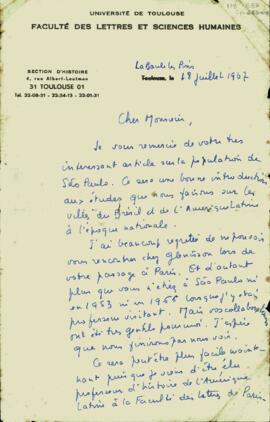 UNIVERSITÉ DE TOULOUSE
FACULTÉ DES LETTRES ET SCIENCES HUMAINES
SECTION D'HISTOIRE
4, rue Albert-Lautman
31 TOULOUSE 01
Tél. 22-08-31 - 22-34-13 - 22-01-31
La Baule les Pins
Toulouse, le 18 juillet 1967
Cher Monsieur,
Je vous remercie de votre très
intéressant article sur la population de
São Paulo. Ce sera une bonne introduction
aux études que nous faisons sur les
villes du Brésil et de l'Amérique Latine
à l'époque nationale.
J'ai beaucoup regretté de ne pouvoir
vous rencontrer chez Glénisson lors de
votre passage à Paris. Et d'autant
plus que vous n'étiez à São Paulo ni
en 1953 ni en 1966 lorsque j'y étais
professeur visitant. Mais vos collaborateurs
ont été très gentils pour moi. J'espère
que nous finirons par nous voir.
Ce sera peut être plus facile mainte-
nant puisque je viens d'être élu
professeur d'histoire de l'Amérique
Latine à la Faculté des Lettres de Paris.